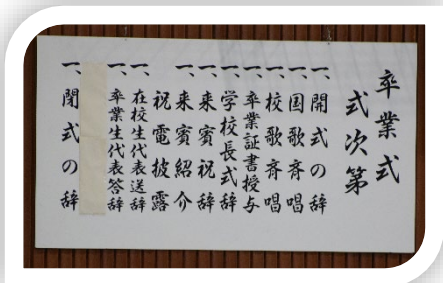 卒業式
式次第
一、開式の辞
一、国歌斉唱
一、校歌斉唱
一、卒業証書授与
一、学校長式辞
一、来賓祝辞
一、来賓紹介
祝電披露
一、在校生代表送辞
一、卒業生代表答辞
一、閉式の辞